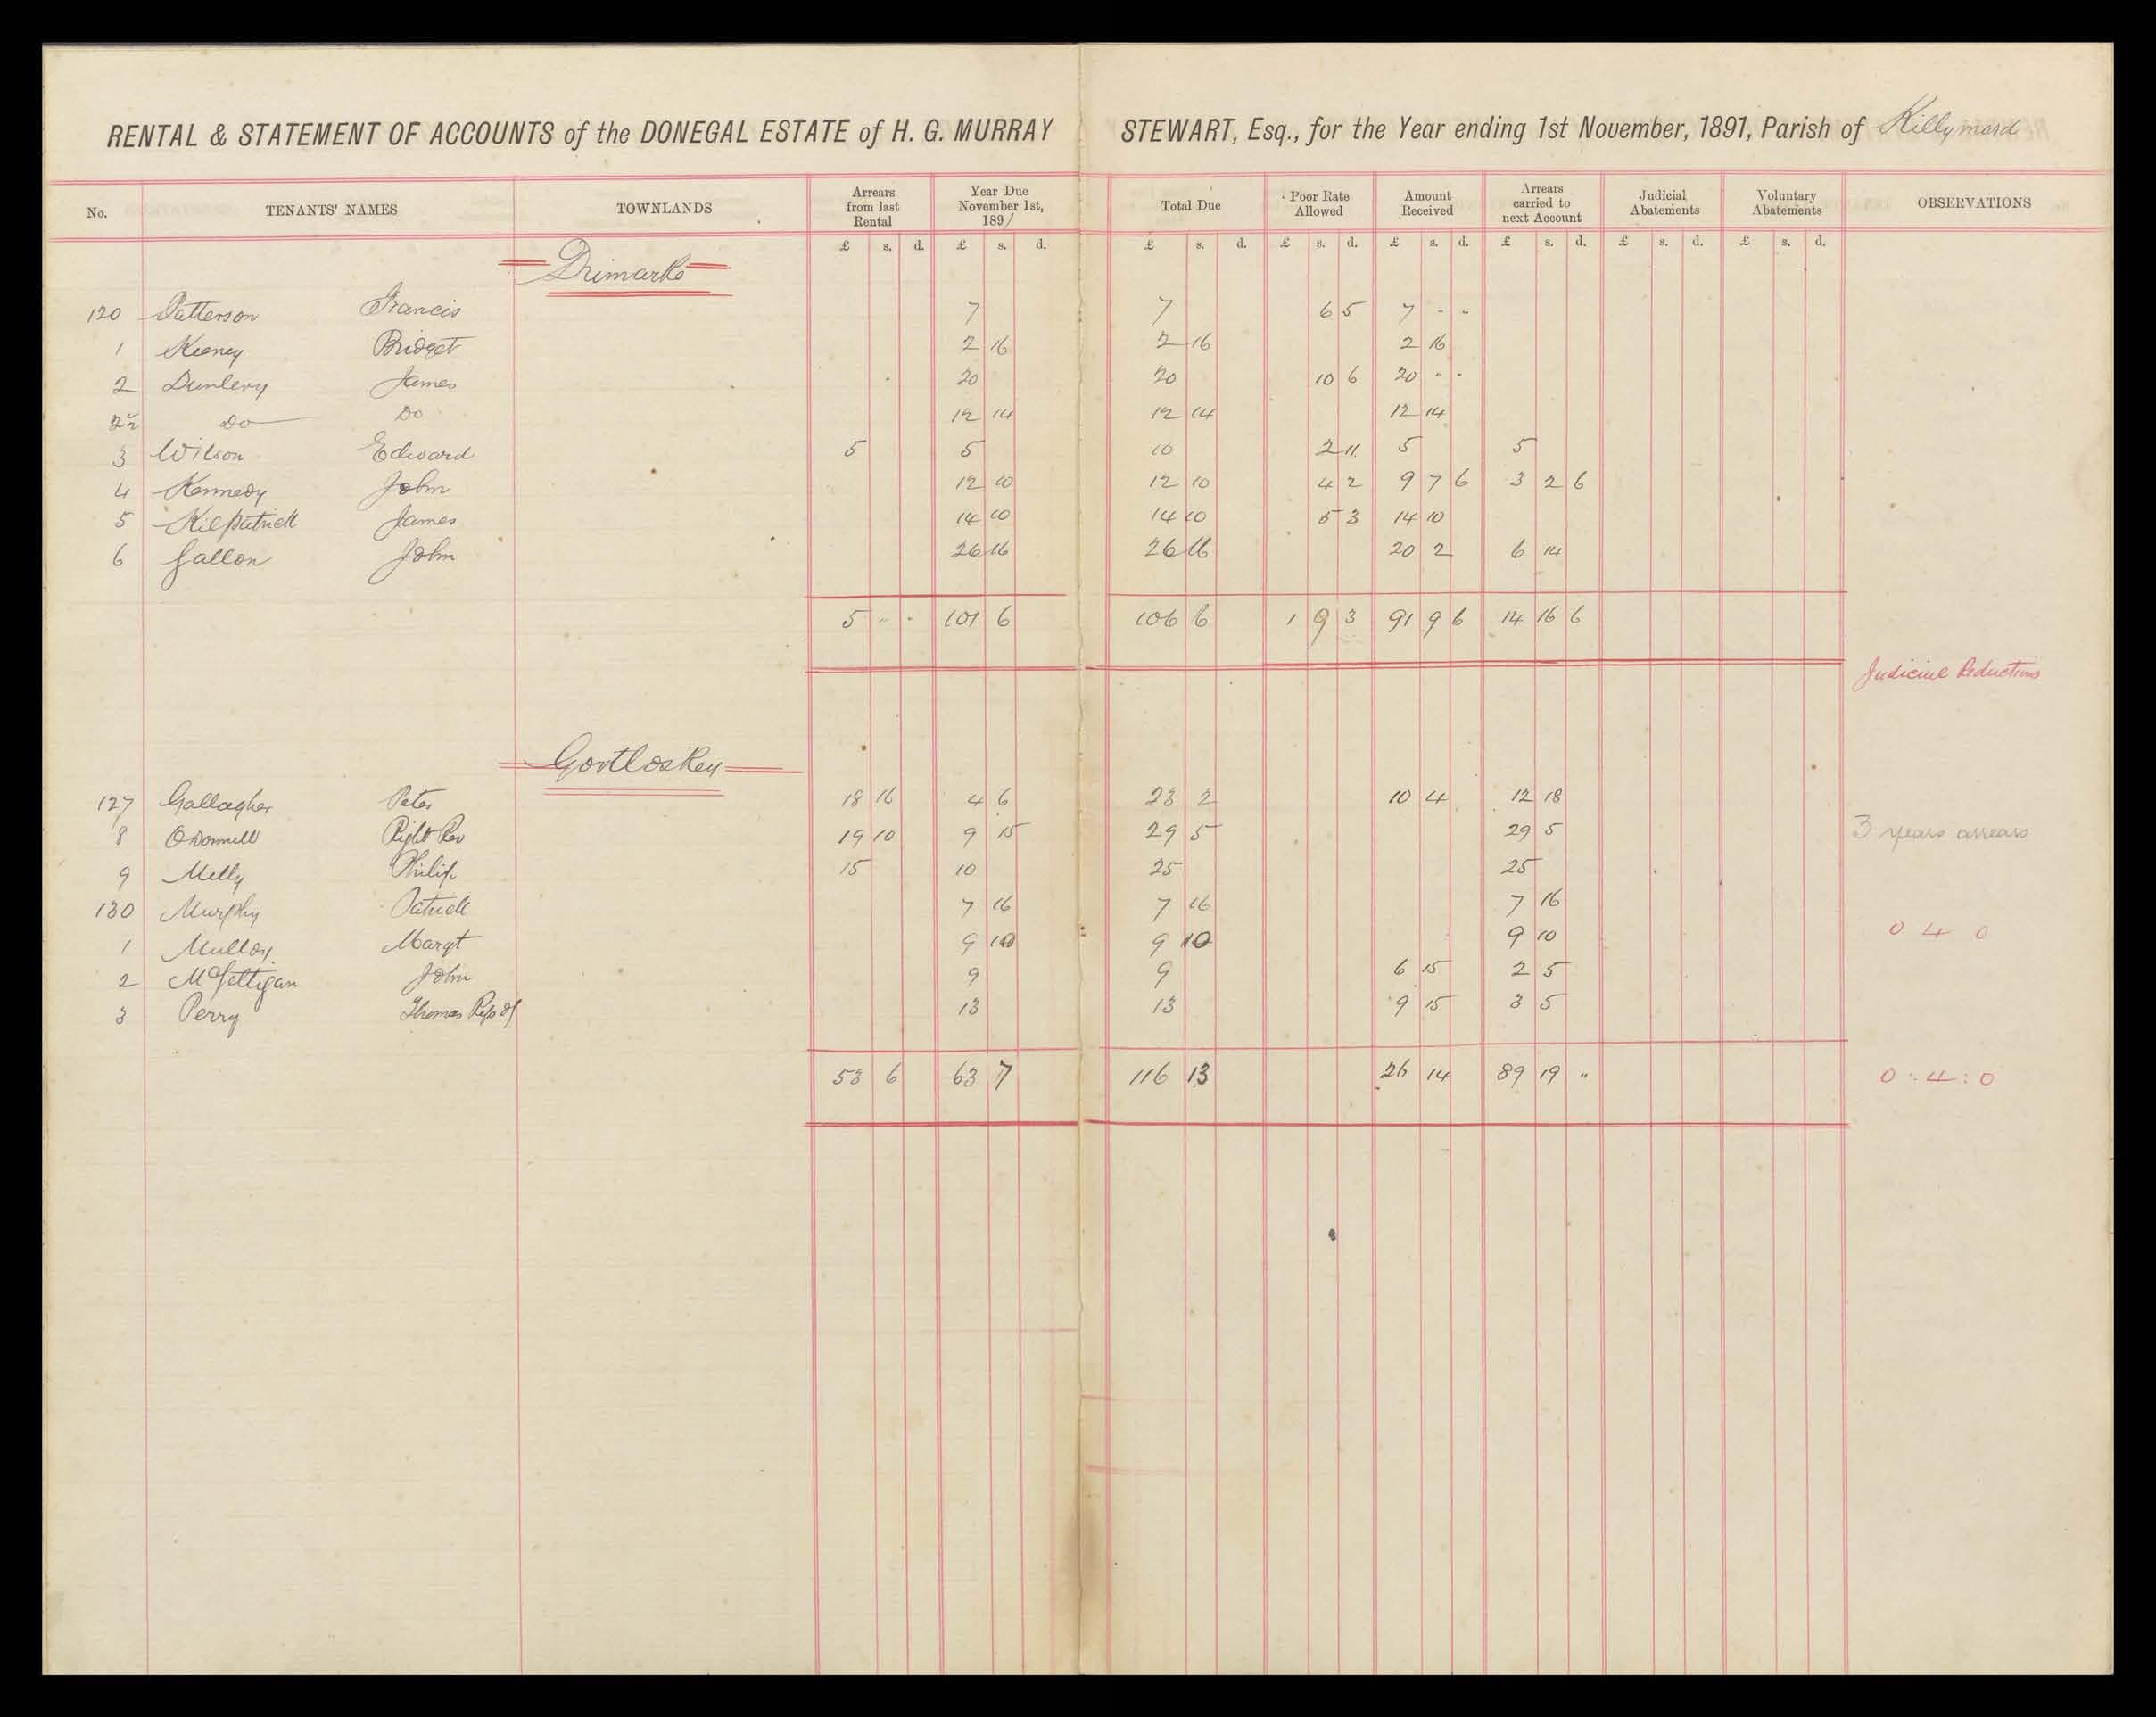 RENTAL & STATEMENT OF ACCOUNTS of the DONEGAL ESTATE of H. G. MURRAY STEWART, Esq., for the Year ending 1st November, 1891, Parish of Killymard
No. TENANTS' NAMES TOWNLANDS Arrears from last Rental Year Due November 1st, 1891 Total Due Poor Rate Allowed Amount Received Arrears carried to next Account Judicial Abatements Voluntary Abatements OBSERVATIONS
£ s. d. £ s. d. £ s. d. £ s. d. £ s. d. £ s. d. £ s. d. £ s. d.
Drimarke
120 Patterson Francis 7 7 6 5 7 - -
1 Keeney Bridget 2 16 2 16 2 16
2 Dunlevy James 20 20 10 6 20 - -
Do Do 12 14 12 14 12 14
3 Wilson Edward 5 5 10 2 11 5 5
4 Kennedy John 12 10 12 10 4 2 9 7 6 3 2 6
5 Kilpatrick James 14 10 14 10 5 3 14 10
6 Gallon John 26 16 26 16 20 2 6 14
5 - - 101 6 106 6 1 9 3 91 9 6 14 16 6
Judicial Reductions
Gortlosken
127 Gallagher Peter 18 16 4 6 23 2 10 4 12 18
8 O'Donnell Right Rev 19 10 9 15 29 5 29 5 3 years arrears
9 Melly Philip 15 10 25 25
130 Murphy Patrick 7 16 7 16 7 16
1 Mulloy Margt 9 10 9 10 9 10 0 4 0
2 McFettigan John 9 9 6 15 2 5
3 Perry Thomas Reps of 13 13 9 15 3 5
53 6 63 7 116 13 26 14 89 19 " 0 : 4 : 0